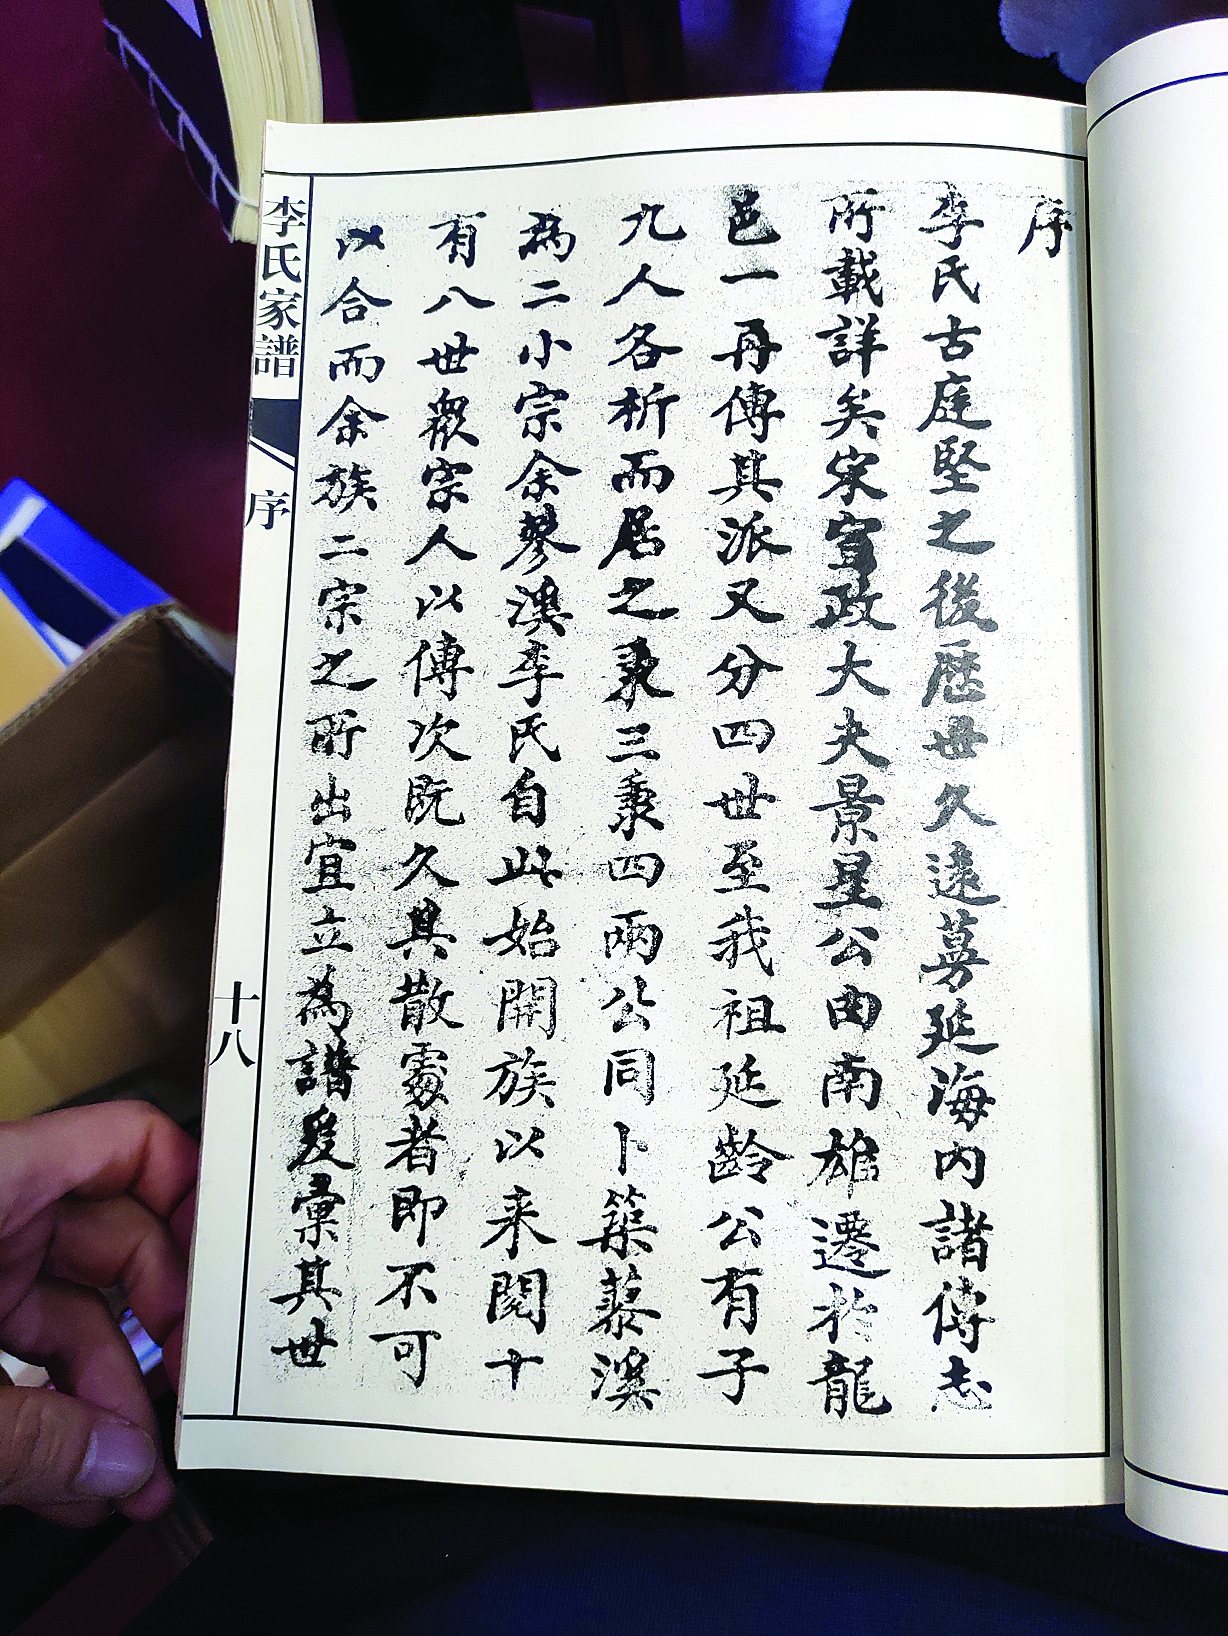 序
李氏古庭堅之後歷世久遠蔓延海內諸傳志
所載詳矣宋宣政大夫景星公由南雄遷於龍
邑一再傳其派又分四世至我祖延齡公有子
九人各析而居之秉三秉四兩公同卜築蓼溪
為二小宗余蓼溪李氏自此始開族以来閱十
有八世眾宗人以傳次既久其散處者即不可
以合而余族二宗之所出宜立為譜爰彙其世
李氏家譜
序
十八